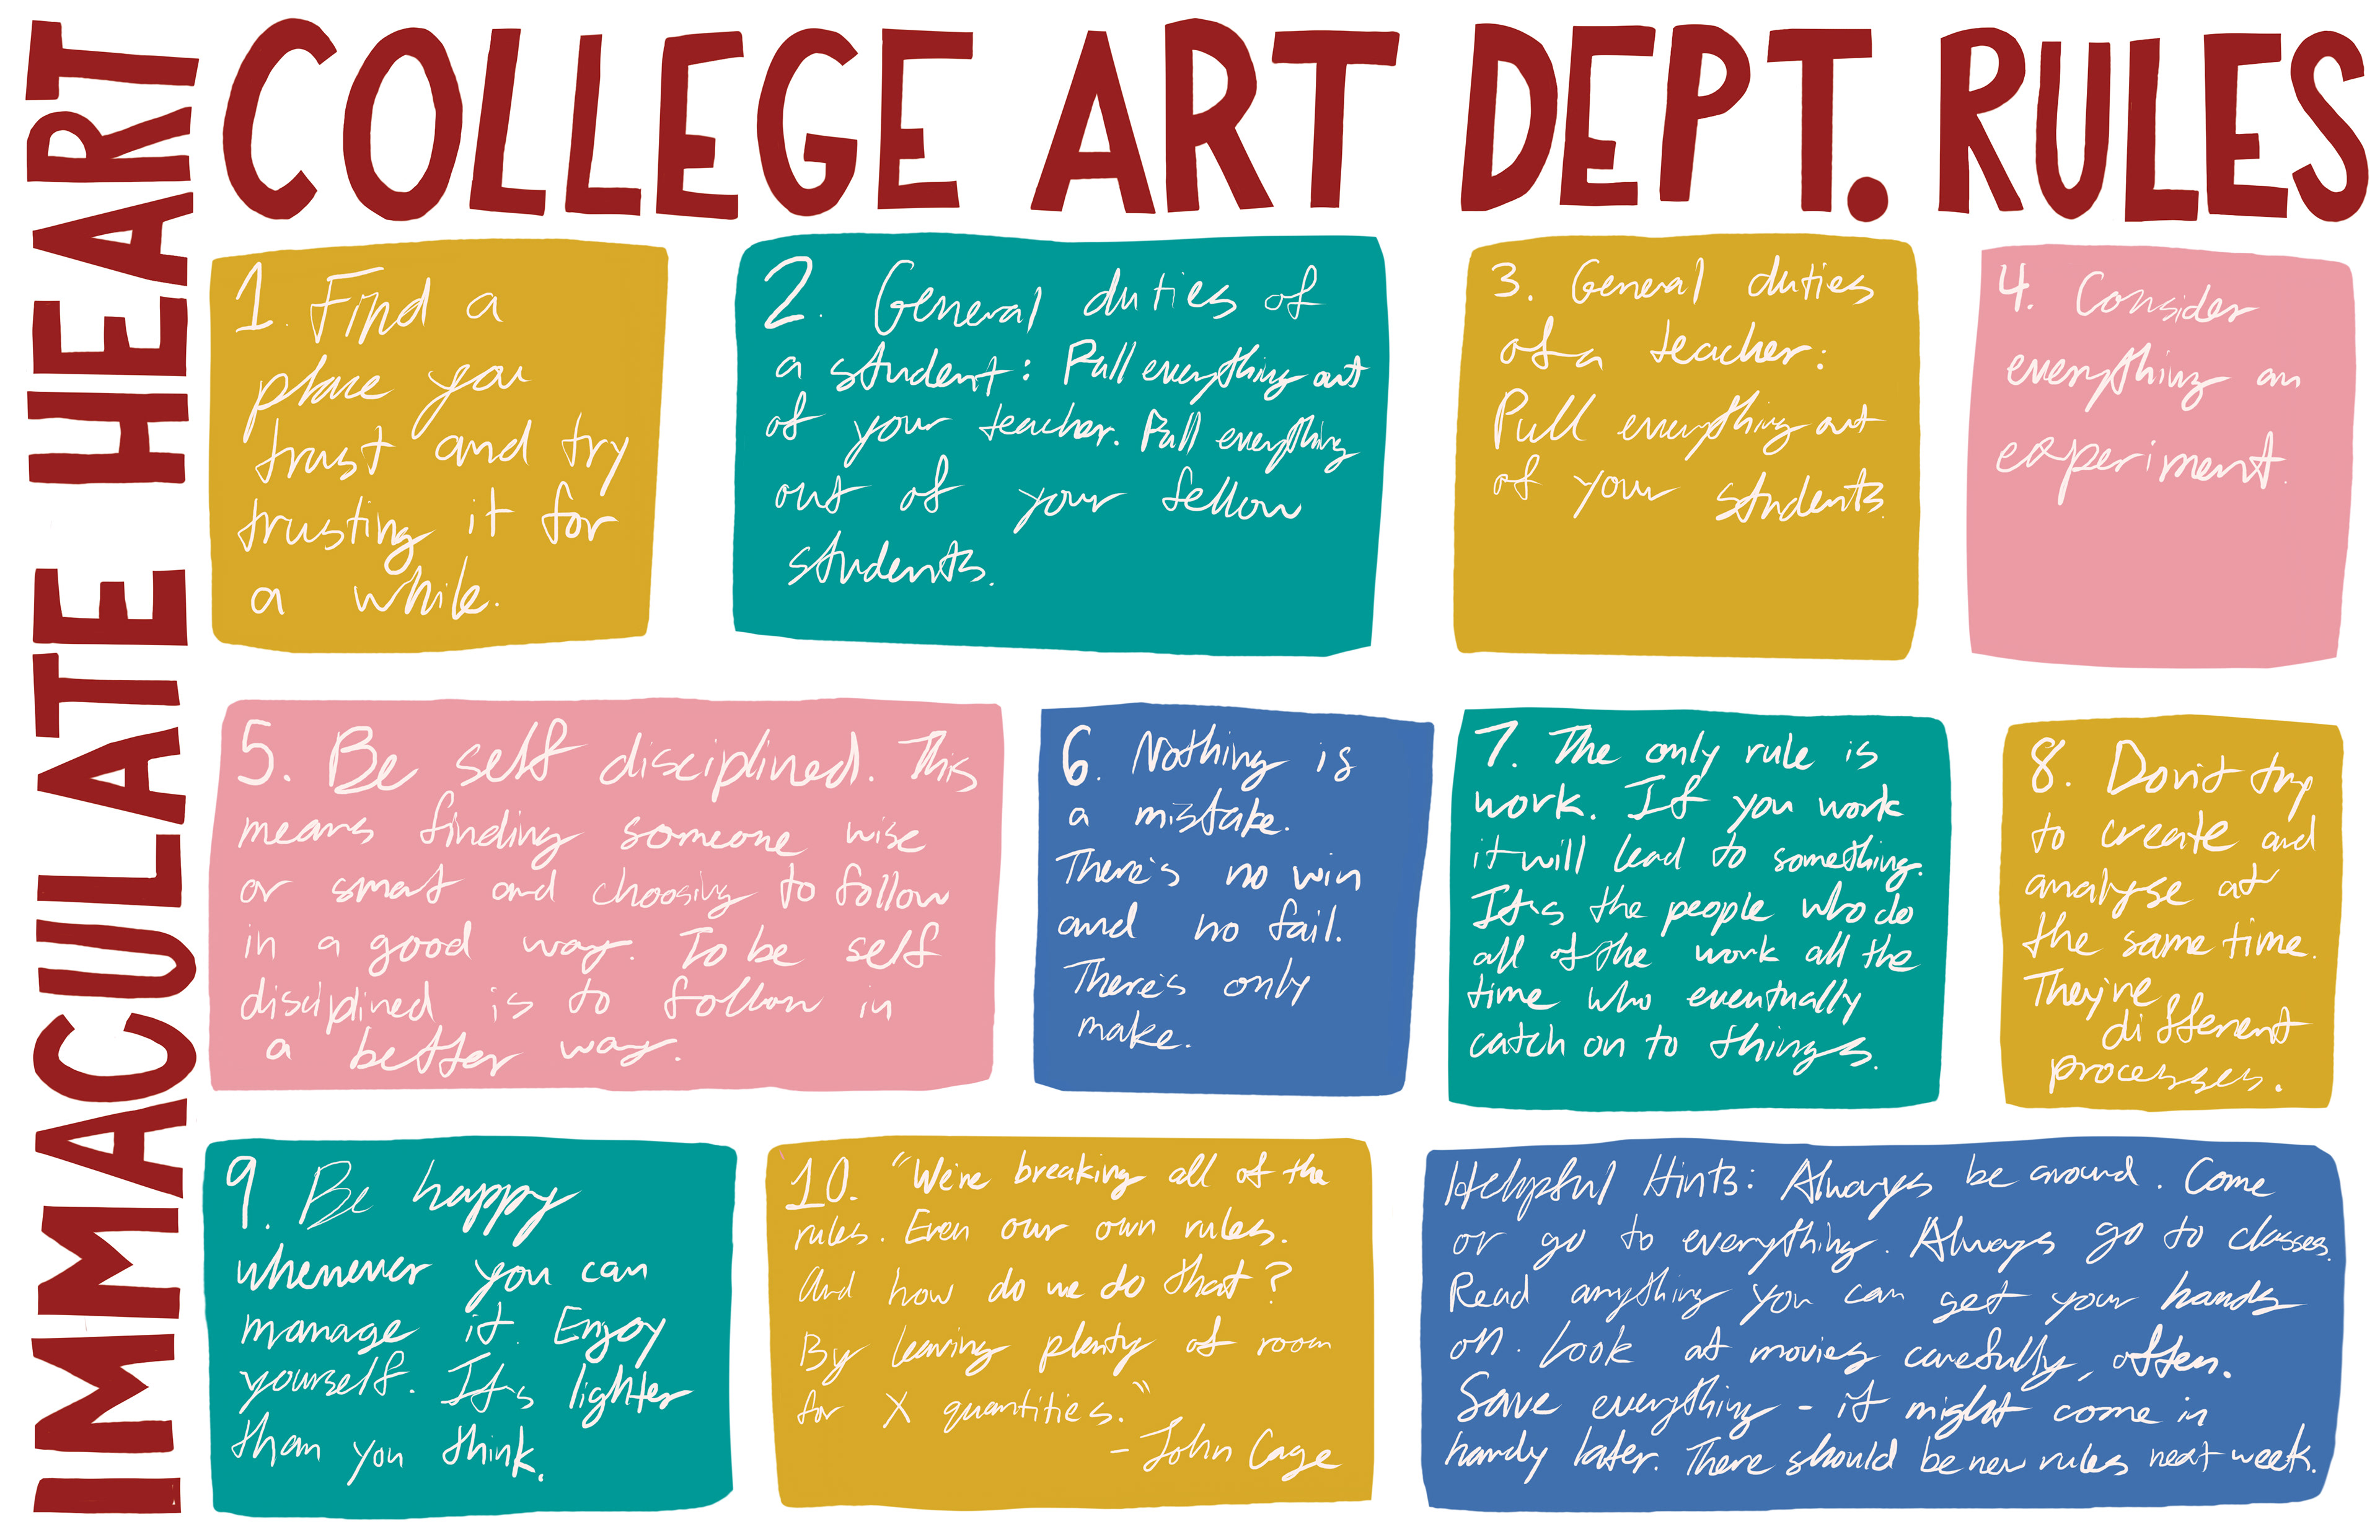 IMMACULATE HEART
COLLEGE ART DEPT. RULES
1. Find a
place you
trust and try
trusting it for
a while.
2. General duties of
a student: Pull everything out
of your teacher. Pull everything
out of your fellow
students.
3. General duties
of a teacher:
Pull everything out
of your students
4. Consider
everything an
experiment.
5. Be self disciplined. This
means finding someone wise
or smart and choosing to follow
in a good way. To be self
disciplined is to follow in
a better way.
6. Nothing is
a mistake.
There's no win
and no fail.
There's only
make.
7. The only rule is
work. If you work
it will lead to something.
It's the people who do
all of the work all the
time who eventually
catch on to things.
8. Don't try
to create and
analyse at
the same time.
They're
different
processes.
9. Be happy
whenever you can
manage it. Enjoy
yourself. It's lighter
than you think.
10. "We're breaking all of the
rules. Even our own rules.
And how do we do that?
By leaving plenty of room
for X quantities."
- John Cage
Helpful Hints: Always be around. Come
or go to everything. Always go to classes.
Read anything you can get your hands
on. Look at movies carefully, often.
Save everything - it might come in
handy later. There should be new rules next week.